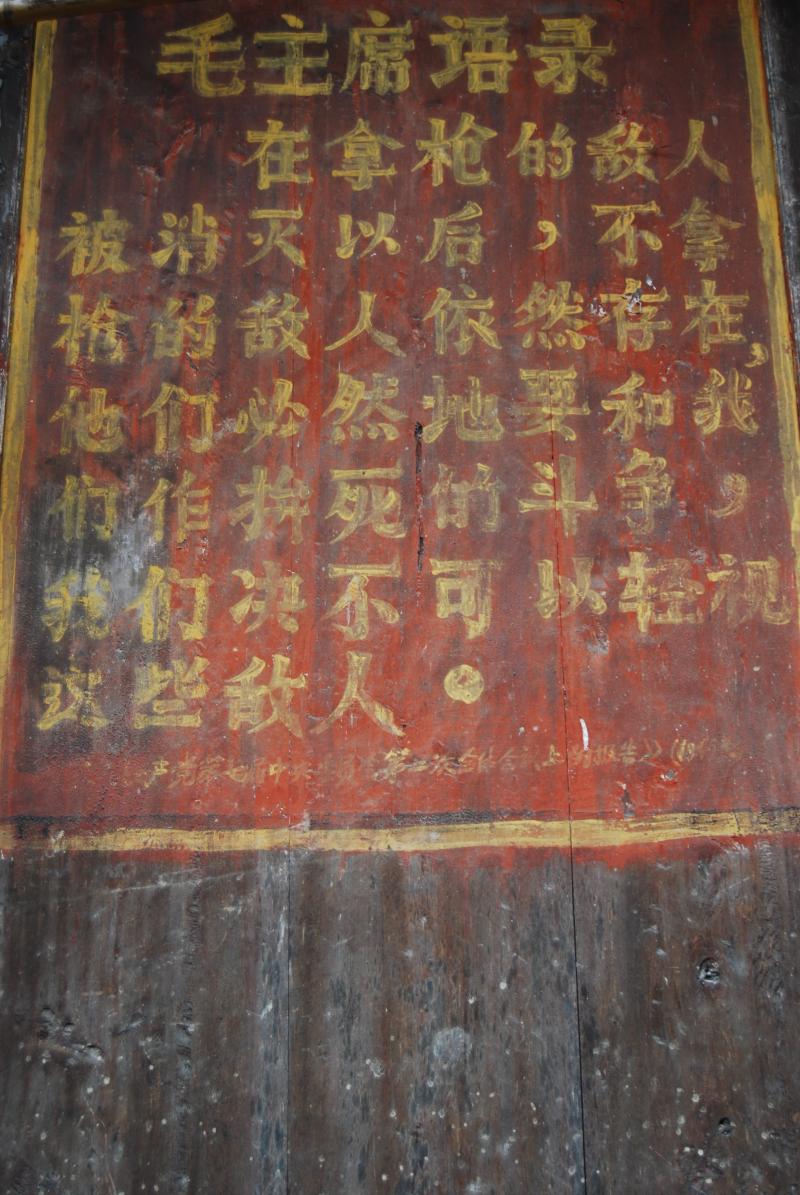 毛主席语录
在拿枪的敌人
被消灭以后，不拿
枪的敌人依然存在，
他们必然地要和我
们作拚死的斗争，
我们决不可以轻视
这些敌人。
产党第七届中央委员会第二次全体会议上的报告》